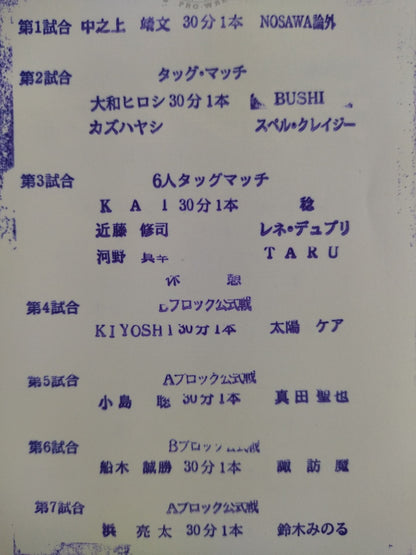 PRO-WRE
第1試合 中之上 靖文 30分1本 NOSAWA論外
第2試合 タッグ・マッチ
大和ヒロシ 30分1本 BUSHI
カズハヤシ スペル・クレイジー
第3試合 6人タッグマッチ
KAI 30分1本 稔
近藤 修司 レネ・デュプリ
河野 真幸 TARU
休憩
第4試合 Bブロック公式戦
KIYOSHI 30分1本 太陽 ケア
第5試合 Aブロック公式戦
小島 聡 30分1本 真田聖也
第6試合 Bブロック公式戦
船木 誠勝 30分1本 諏訪魔
第7試合 Aブロック公式戦
浜 亮太 30分1本 鈴木みのる